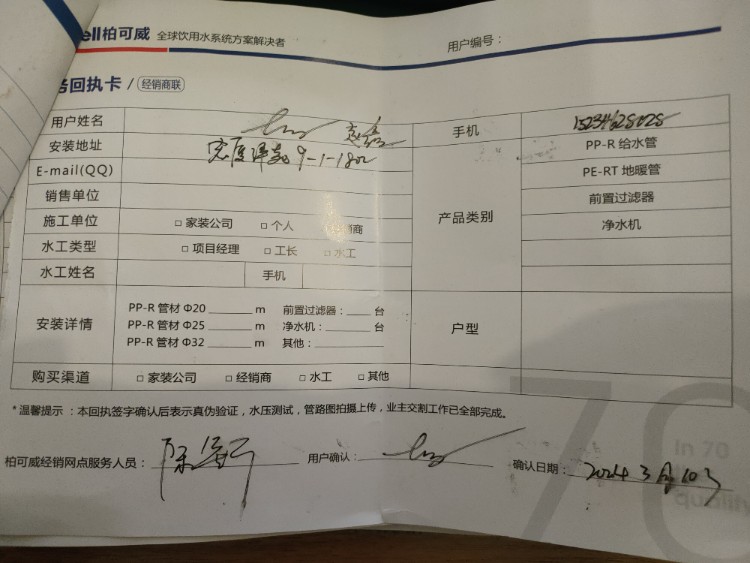 ell柏可威 全球饮用水系统方案解决者
用户编号：
务回执卡 / 经销商联
用户姓名
手机
安装地址 9-1-1802
PP-R 给水管
E-mail(QQ)
PE-RT 地暖管
销售单位
前置过滤器
施工单位 □ 家装公司 □ 个人 □ 经销商
产品类别
净水机
水工类型 □ 项目经理 □ 工长 □ 水工
水工姓名 手机
安装详情
PP-R 管材 Φ20 ______ m 前置过滤器：____ 台
PP-R 管材 Φ25 ______ m 净水机：____ 台
PP-R 管材 Φ32 ______ m 其他：______
户型
购买渠道 □ 家装公司 □ 经销商 □ 水工 □ 其他
*温馨提示：本回执签字确认后表示真伪验证，水压测试，管路图拍摄上传，业主交割工作已全部完成。
柏可威经销网点服务人员： 用户确认： 确认日期：2024 3月10日
70
In 70
quality